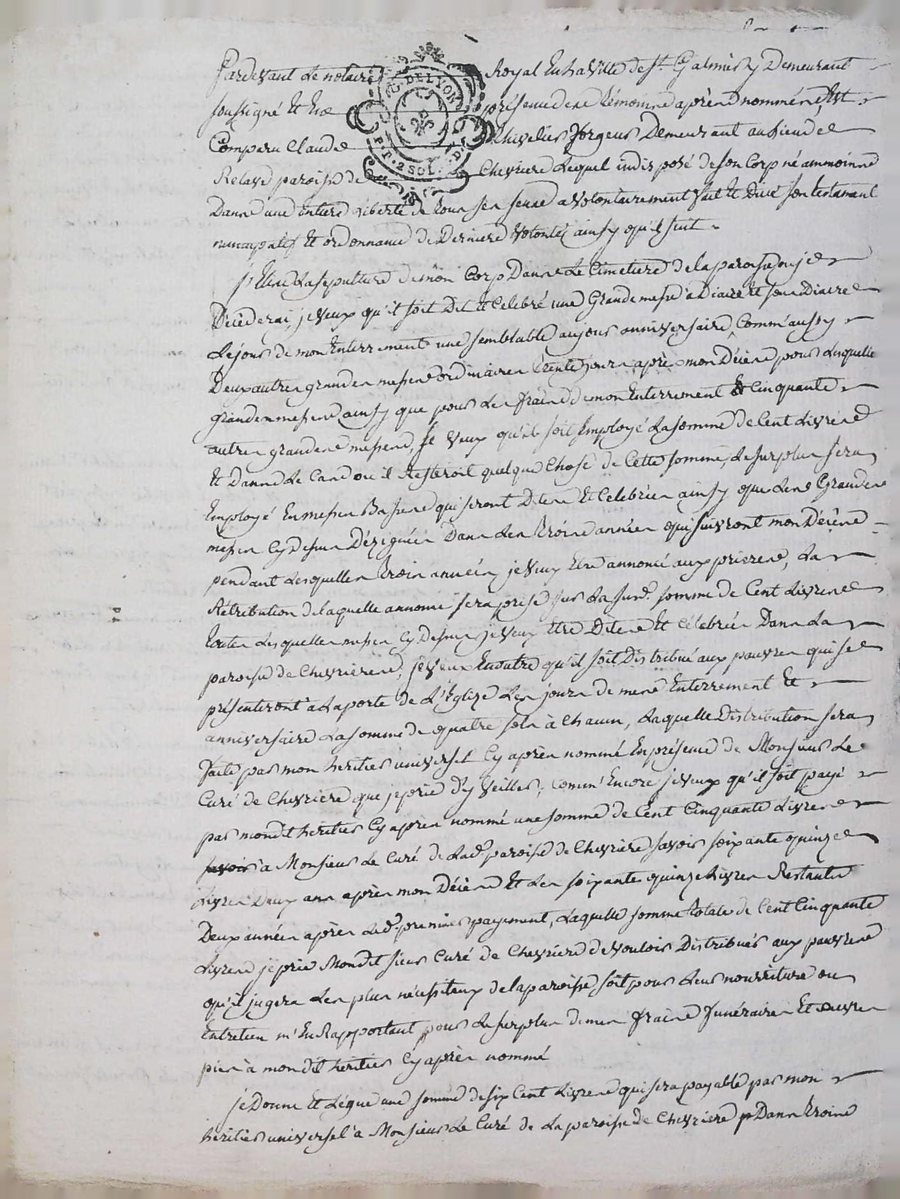 Pardevant Le notaire Royal En La Ville de St. Galmier y Demeurant
soussigné Et En présence dene témoinne aprènd nomméne, Est
Comparu Claude Chevelier forgeur Demeurant au lieu de
G. DE LYON
P.P. 2 SOL. D.
Relave paroisse de Chevriere Lequel indisposé de son Corp né ammoinne
Danne une Entiere Liberté de tour sen senne a volontairement fait Et Dicté son testament
nuncupatif Et ordonnance de Derniere volonté ainsy qu'il suit
j'Elise La sepulture de mon Corp Danne Le Cimetiere de la paroisse ou je
Décéderai, je veux qu'il soit Dit Et Celebré une Grande messe a Diacre Et sous Diacre
Le jour de mon Enterrement une semblable au jour anniversaire, Comm'aussy
Deux autren granden messene ordinairen trente jours aprèn mon Décène pour Lesquelle
Granden messene ainsy que pour Len fraine de mon Enterrement Et Cinquante
autren grandene messene, je veux qu'il soit Employé La somme de Cent Livrene
Et Danne Le Cand ou il Resteroit quelque Chose de Cette somme, Le surplus sera
Employé En messen Bassene qui seront Ditene Et Celebréen ainsy que Lene Grandene
messen Cy Dessun Dézignéen Danne Len troine annéen qui suivront mon Décène
pendant Lesquellen troin annéen je veux Etre annoncé aux prierene, La
Rétribution de laquelle annonce sera prise sur La sud. somme de Cent Livrene
toute Lesquellen messen Cy Dessun je veux être Ditene Et Celebréen Danne La
paroisse de Chevrierene, je veux En outre qu'il soit Distribué aux pauvren qui se
présenteront à La porte de L'Eglize Len journ de mene Enterrement Et
anniversaire La somme de quatre soln à Chacun, Laquelle Distribution sera
faite par mon heritier universel Cy aprèn nommé En présence de Monsieur Le
Curé de Chevriere que je prie d'y veiller; comm'Encore je veux qu'il soit payé
par mondit heritier Cy aprèn nommé une somme de Cent Cinquante Livrene
à Monsieur Le Curé de Lad. paroisse de Chevriere savoir soixante quinze
Livren Deux ann aprèn mon Décène Et Len soixante quinze Livren Restante
Deux année aprèn Led. premier payement, Laquelle somme totale de Cent Cinquante
Livrene je prie Mondit sieur Curé de Chevriere de vouloir Distribuer aux pauvrene
qu'il jugera Len plus nécessiteux de la paroisse soit pour Leur nourriture ou
Entretien m'En Rapportant pour Le surplus de men fraine funérairen Et œuvren
pien à mondit heritier Cy aprèn nommé
je Donne Et Légue une somme de six Cent Livrene qui sera payable par mon
héritier universel à Monsieur Le Curé de La paroisse de Chevriere Danne troine